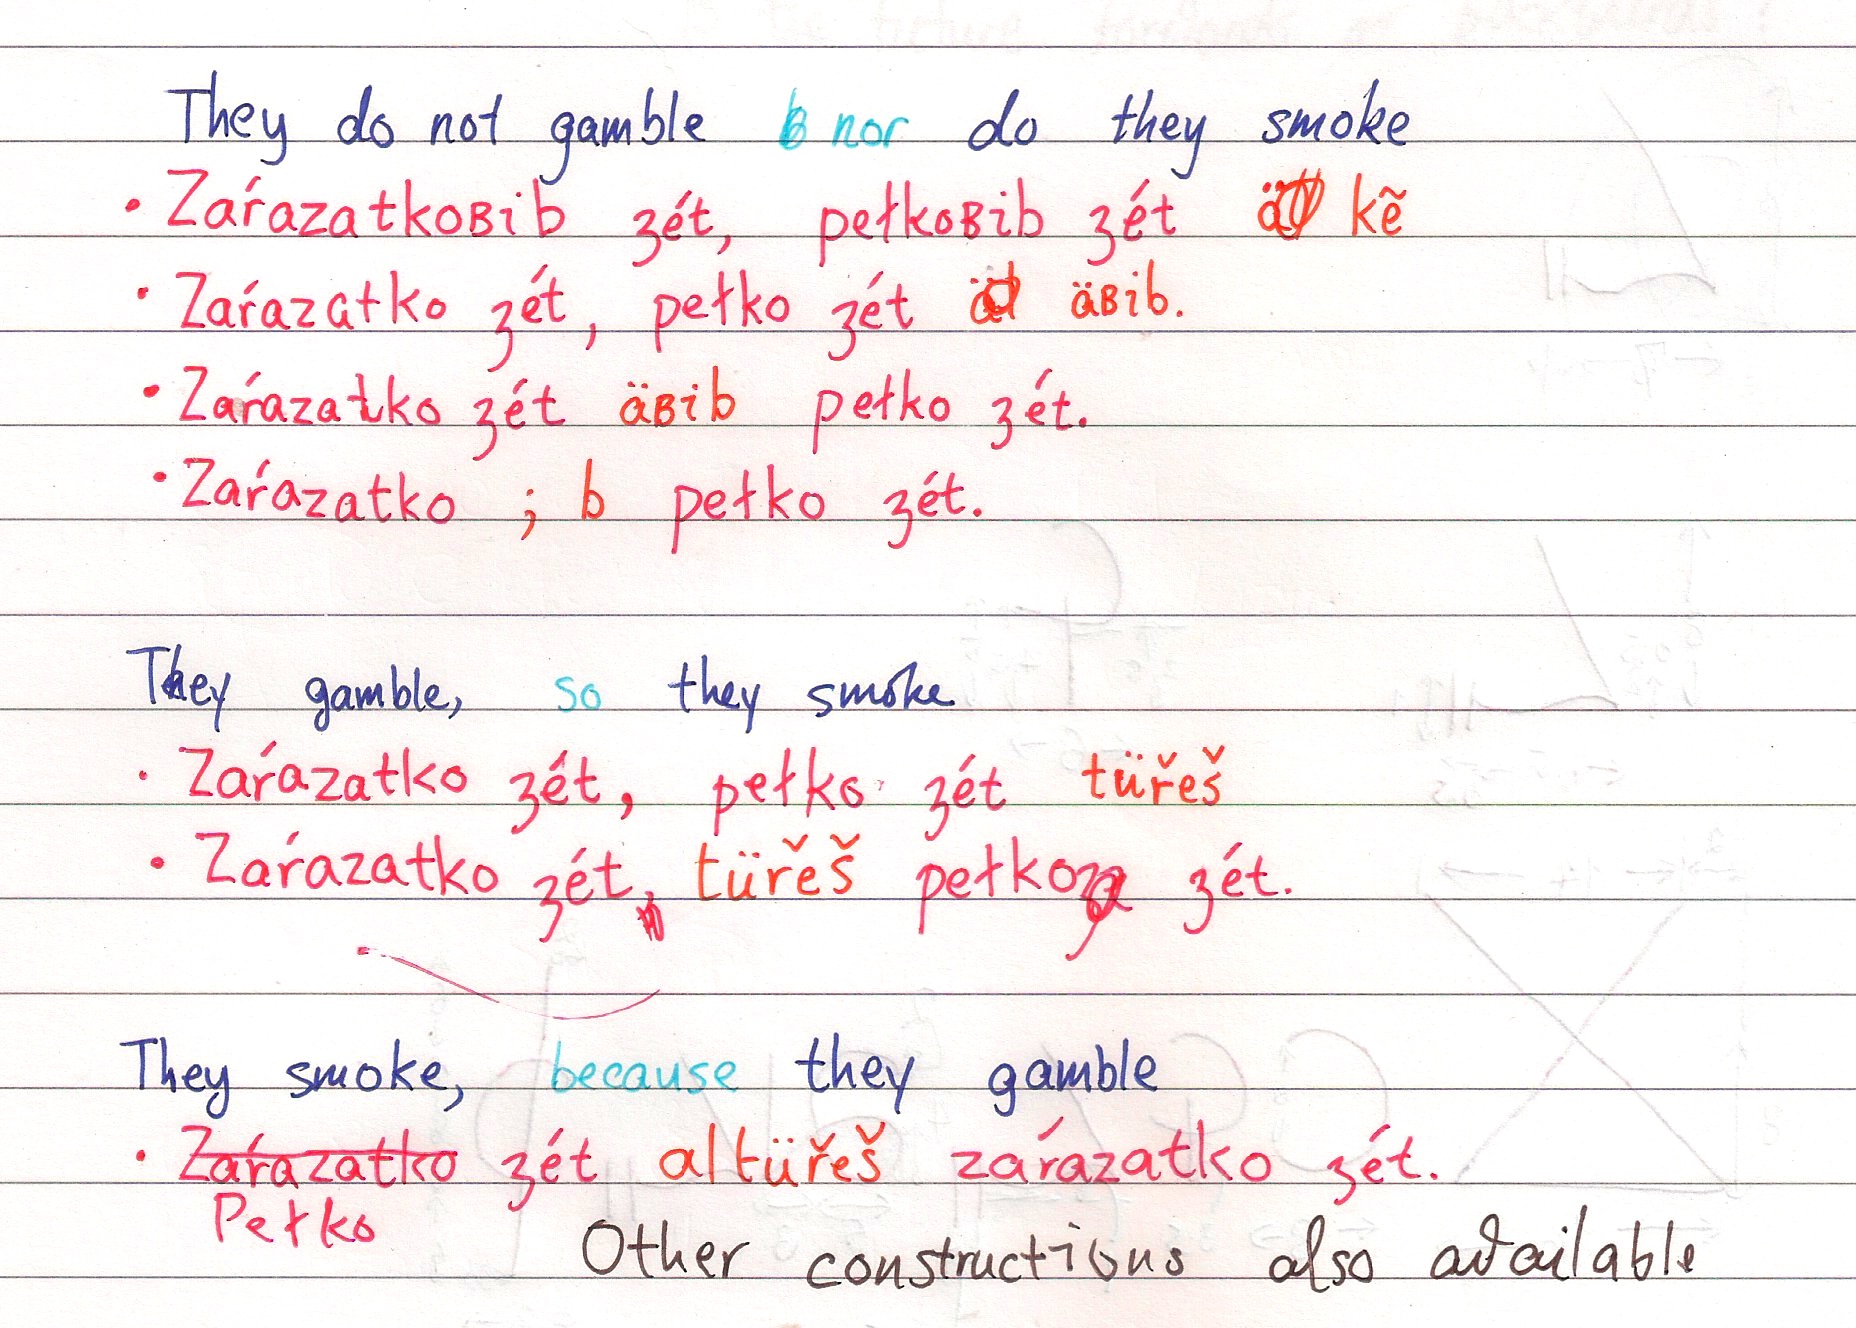 They do not gamble nor do they smoke
• Zaŕazatkoвib зét, pełkoвib зét kẽ
• Zaŕazatko зét, pełko зét äвib.
• Zaŕazatko зét äвib pełko зét.
• Zaŕazatko ; b pełko зét.
They gamble, so they smoke
• Zaŕazatko зét, pełko зét tüřeš
• Zaŕazatko зét, tüřeš pełko зét.
They smoke, because they gamble
• Zaŕazatko зét altüřeš zaŕazatko зét.
Pełko
Other constructions also available